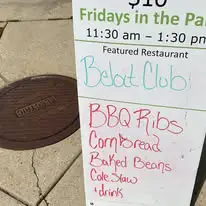 $10
Fridays in the Pa
11:30 am – 1:30 pm
Featured Restaurant
Beloit Club
BBQ Ribs
Corn Bread
Baked Beans
Cole Slaw
+ drink